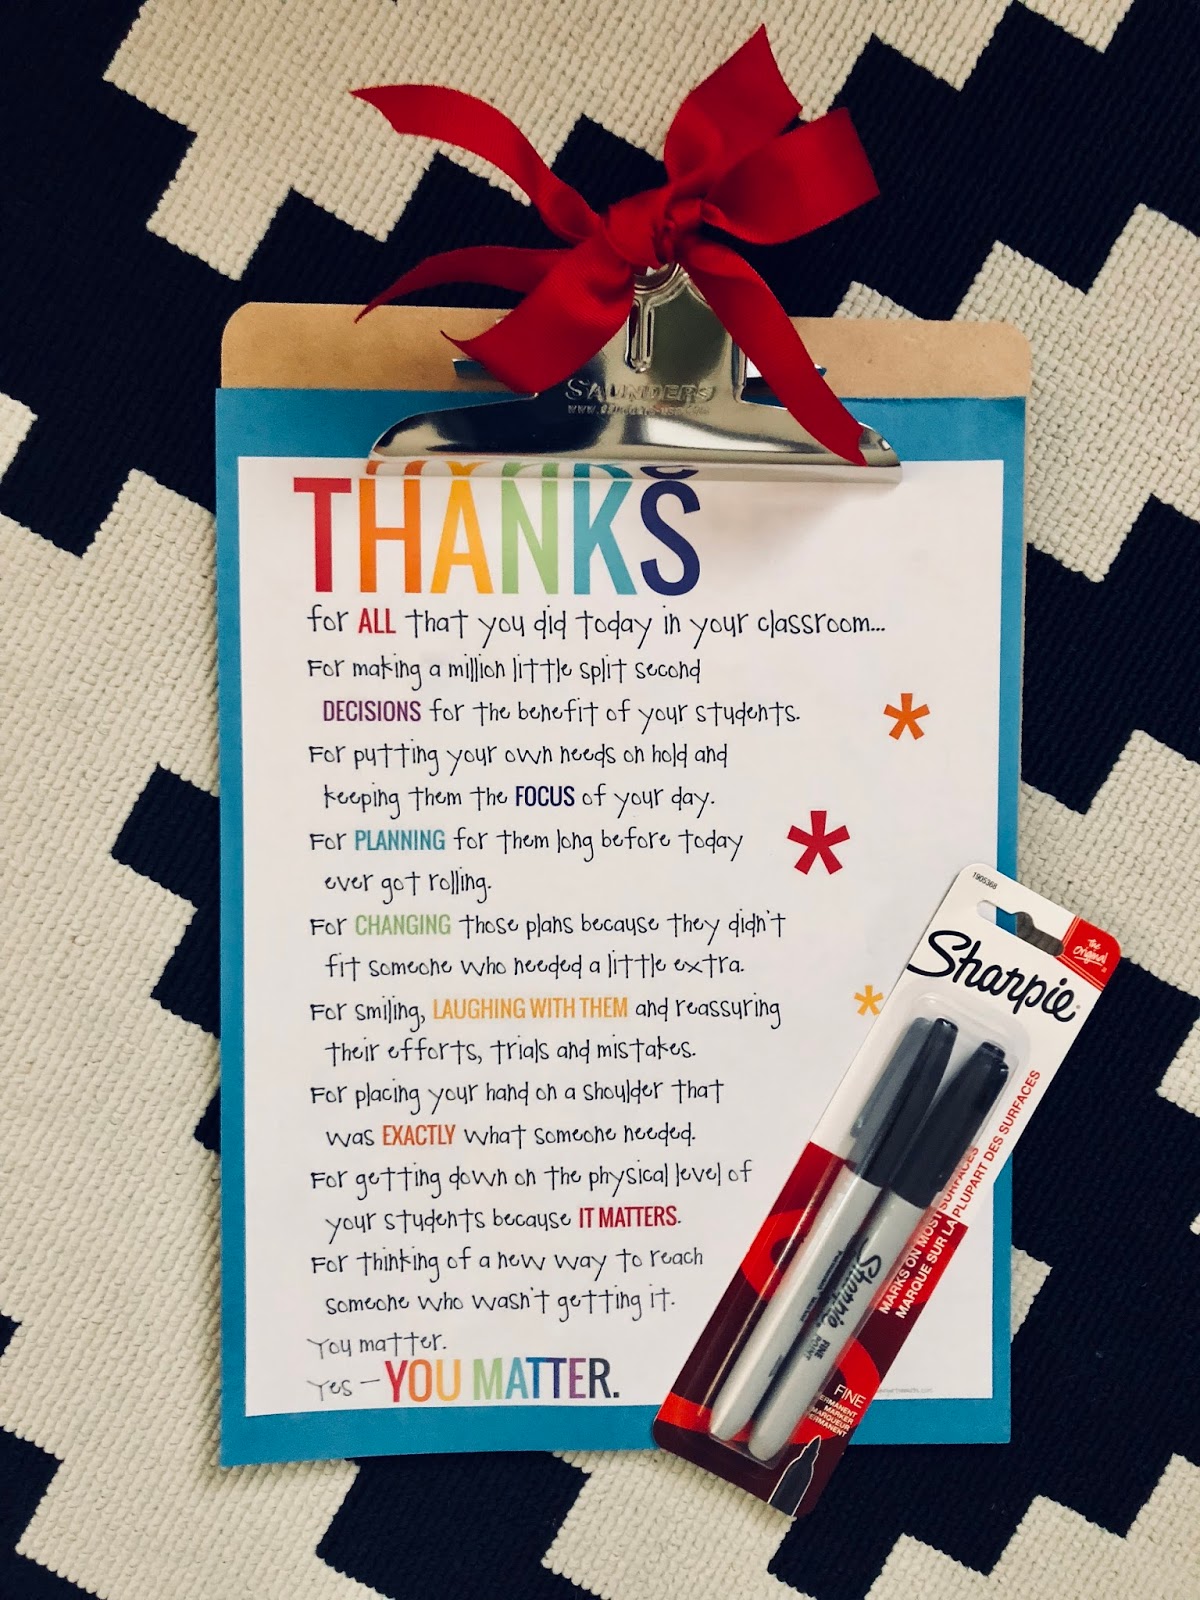 SAUNDERS
THANKS
for ALL that you did today in your classroom...
For making a million little split second
DECISIONS for the benefit of your students.
For putting your own needs on hold and
keeping them the FOCUS of your day.
For PLANNING for them long before today
ever got rolling.
For CHANGING those plans because they didn't
fit someone who needed a little extra.
For smiling, LAUGHING WITH THEM and reassuring
their efforts, trials and mistakes.
For placing your hand on a shoulder that
was EXACTLY what someone needed.
For getting down on the physical level of
your students because IT MATTERS.
For thinking of a new way to reach
someone who wasn't getting it.
You matter.
Yes – YOU MATTER.
1905368
the
Original
Sharpie
MARKS ON MOST SURFACES
MARQUE SUR LA PLUPART DES SURFACES
Sharpie
FINE
POINT
FINE
PERMANENT
MARKER
MARQUEUR
PERMANENT